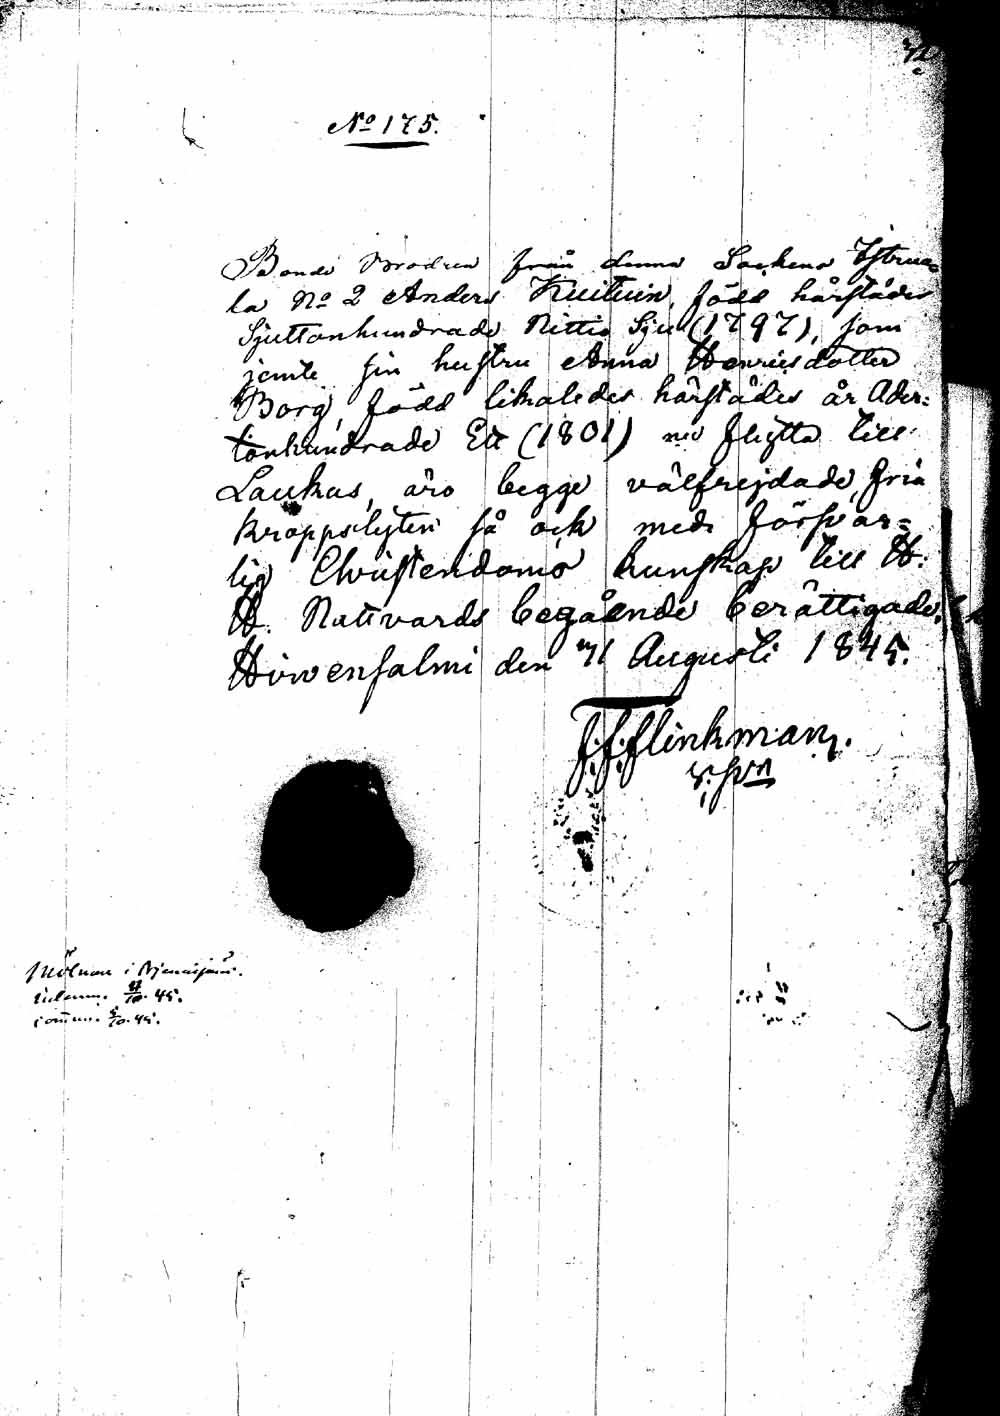 No 175.
Bonde Brodren från denna Sockens Ystrua=
la No 2 Anders Kuituin, född härstädes
Sjuttonhundrade Nittio Sju (1797), som
jemte sin hustru Anna Henricsdotter
Borg, född likaledes härstädes år Ader=
tonhundrade Ett (1801) nu flytta till
Laukas, äro begge välfrejdade, fria
kroppslyten så ock med försvar=
lig Christendoms kunskap till H.
H. Nattvards begående berättigade.
Hirvensalmi den 71 Augusti 1845.
J. F. Flinkman.
i
10. 45.
10. 45.